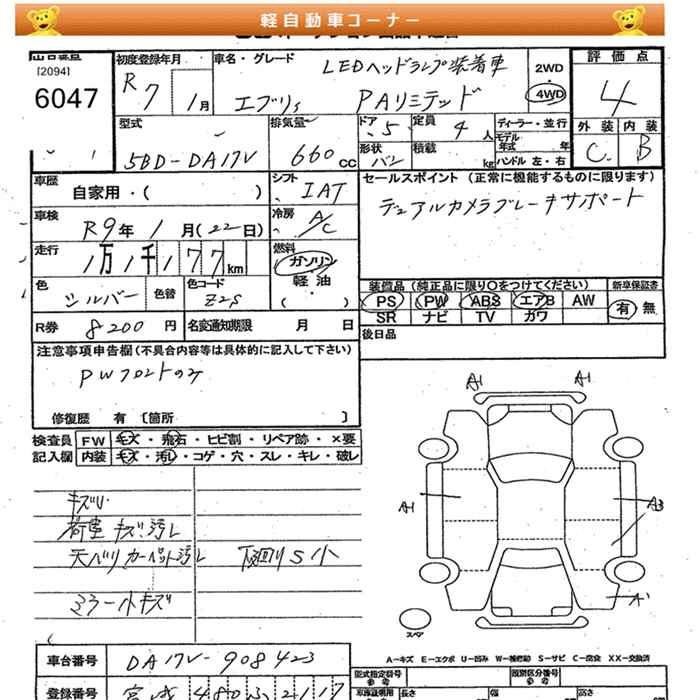 軽自動車コーナー
[2094]
6047
初度登録年月
R 7 1月
車名・グレード
LEDヘッドランプ装着車
エブリィ PAリミテッド
2WD
4WD
評価点
4
外装 内装
C B
型式
5BD-DA17V
排気量
660cc
ドア 5
定員 4人
ディーラー・並行
形状 バン
積載 kg
モデル年式 年
ハンドル 左・右
車歴
自家用・( )
シフト
IAT
車検
R9年1月(22日)
冷房
A/C
走行
1万1千177km
燃料
ガソリン
軽油
( )
色
シルバー
色替
色コード
Z2S
R券 8200円
名変通知期限 月 日
セールスポイント (正常に機能するものに限ります)
デュアルカメラブレーキサポート
装備品(純正品に限り○をつけてください)
PS PW ABS エアB AW
SR ナビ TV カワ
新車保証書
有 無
後日品
注意事項申告欄(不具合内容等は具体的に記入して下さい)
PWフロントのみ
修復歴 有 〔箇所 〕
検査員記入欄
FW キズ・飛石・ヒビ割・リペア跡・×要
内装 キズ・汚れ・コゲ・穴・スレ・キレ・破レ
キズU
荷室 キズ、汚レ
天ベリ カーペット汚レ 下廻りS小
ミラー小キズ
A1 A1
A1
スペア
A-キズ E-エクボ U-凹み W-補修跡 S-サビ C-腐食 XX-交換済
車台番号
DA17V-908423
登録番号
宮城 480 ふ 2117
型式指定番号
類別区分番号
長さ 幅 高さ